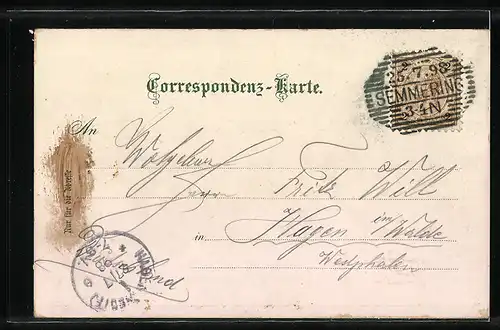 25.7.98
SEMMERING
3-4N
Correspondenz-Karte.
An
Wohlgeboren
Herrn Fritz Witt
in Hagen im Walde
Westphalen
Nur für die Adresse
HAGEN
(WESTF.)